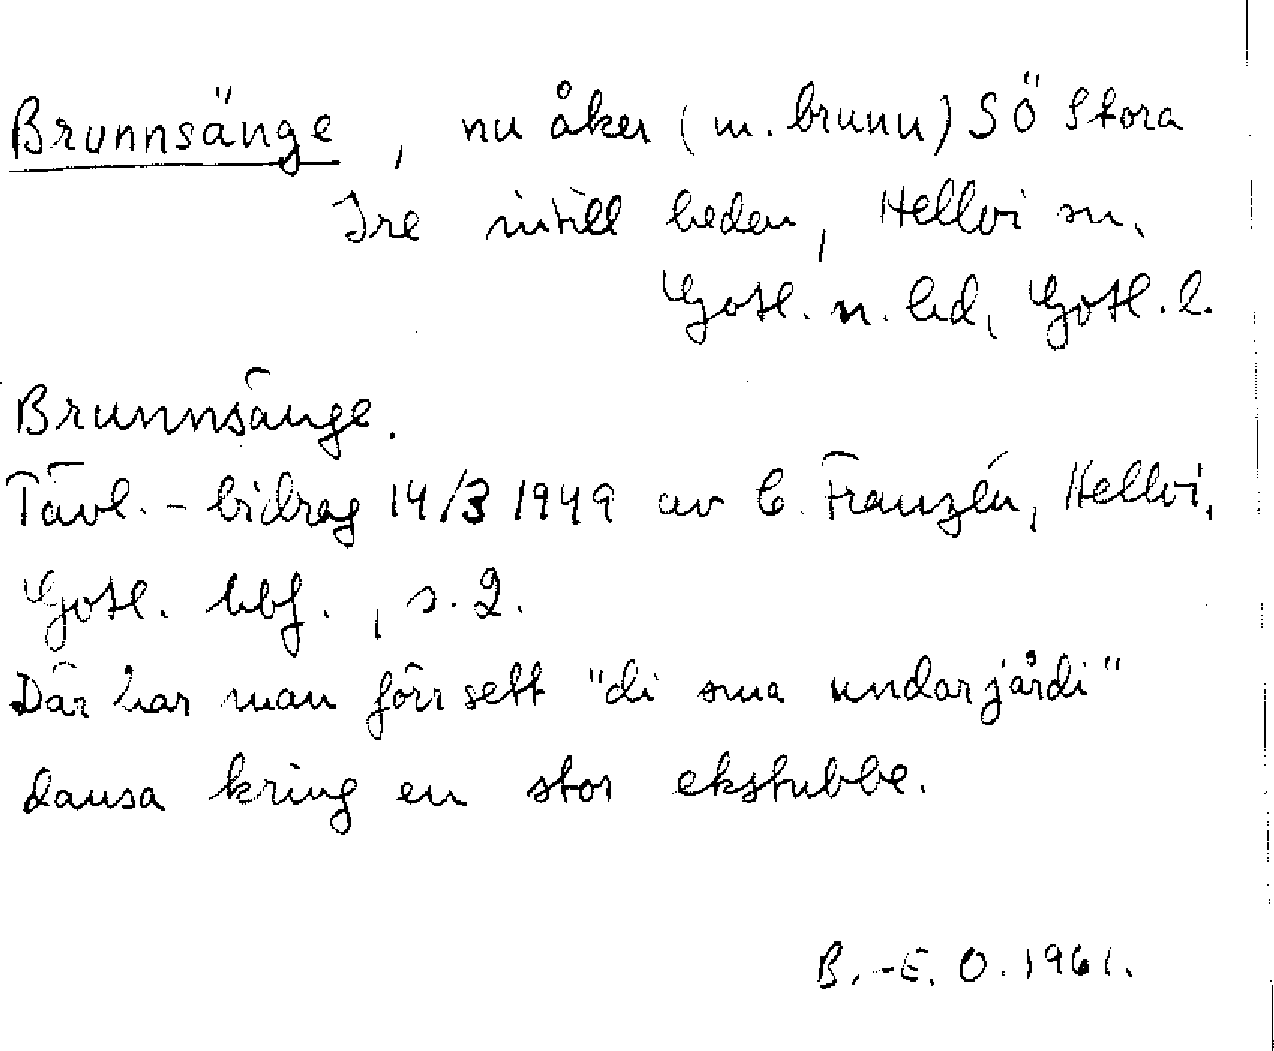 Brunnsänge, nu åker (m. brunn) SÖ Stora
Ire intill heden, Hellvi sn.
Gotl. n. hd, Gotl. l.
Brunnsänge.
Tävl.-bidrag 14/3 1949 av C. Franzén, Hellvi,
Gotl. hbf., s. 2.
Där har man förr sett "di sma undarjårdi"
dansa kring en stor ekstubbe.
B.-E. O. 1961.